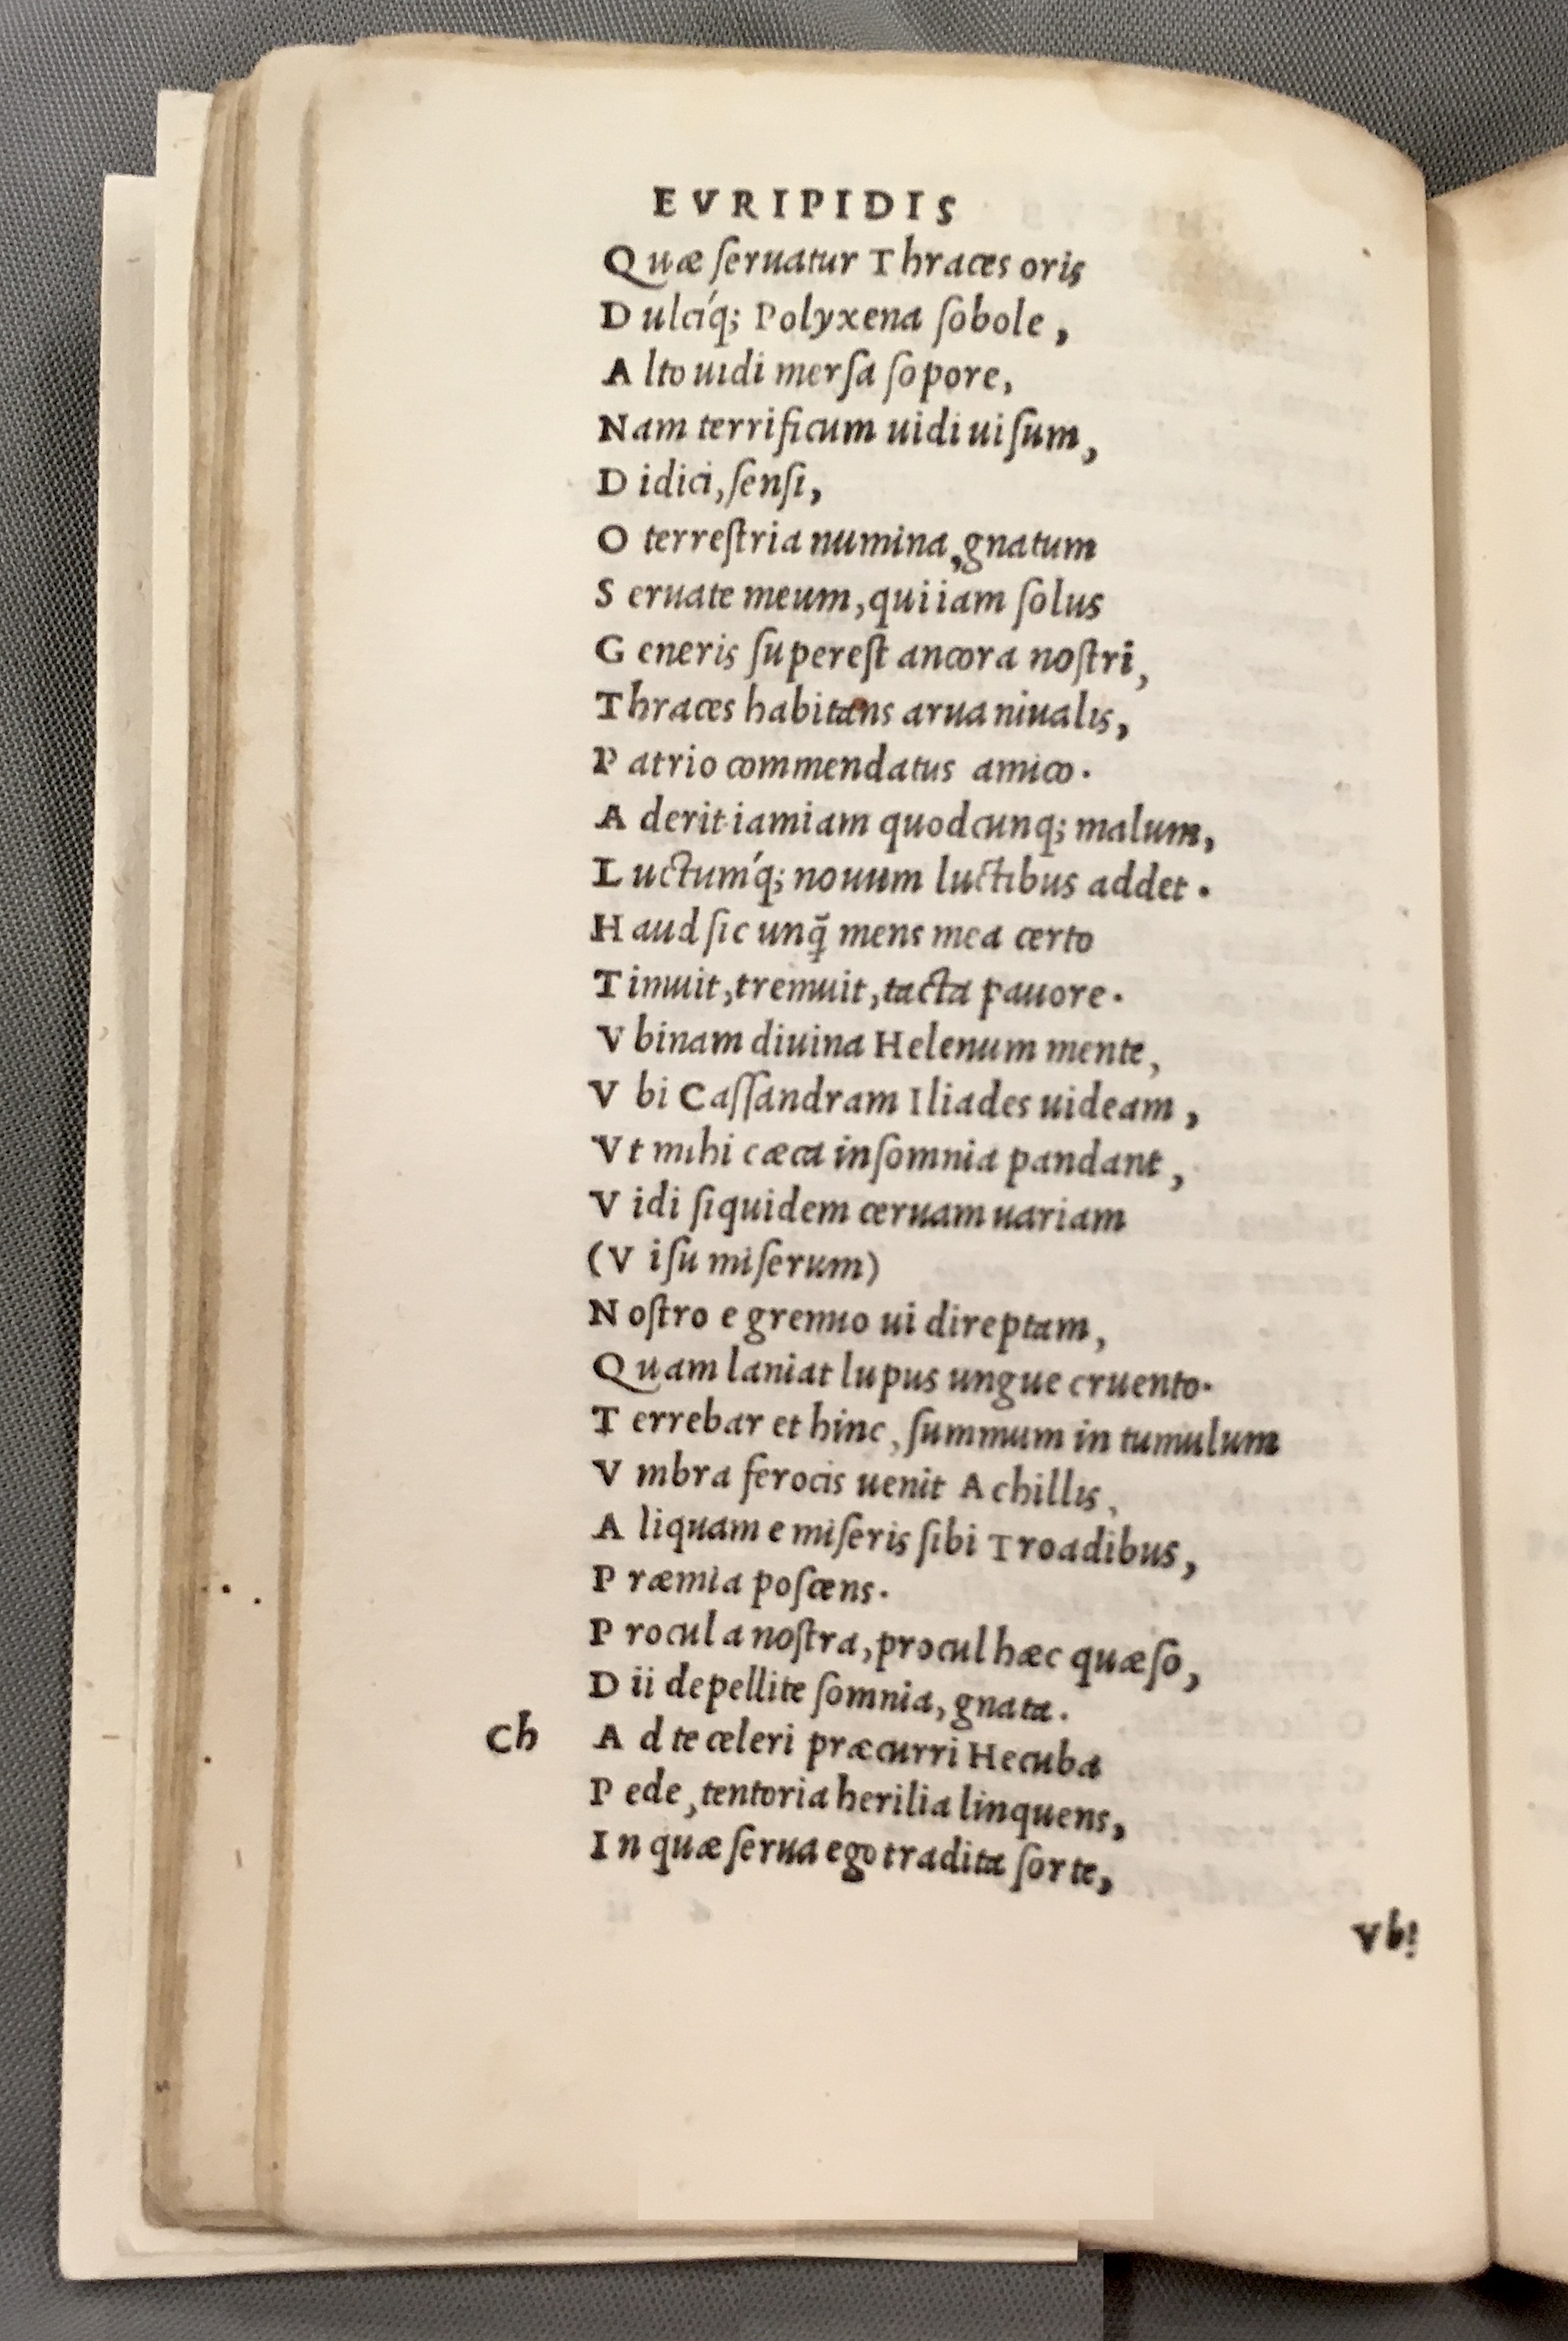 EVRIPIDIS
Quæ ſeruatur Thraces oris
Dulcíq; Polyxena ſobole,
Alto uidi merſa ſopore,
Nam terrificum uidi uiſum,
Didici, ſenſi,
O terreſtria numina, gnatum
Seruate meum, qui iam ſolus
Generis ſupereſt ancora noſtri,
Thraces habitans arua niualis,
Patrio commendatus amico.
Aderit iamiam quodcunq; malum,
Luctum'q; nouum luctibus addet.
Haud ſic unq̃ mens mea certo
Timuit, tremuit, tacta pauore.
Vbinam diuina Helenum mente,
Vbi Caſſandram Iliades uideam,
Vt mihi cæca inſomnia pandant,
Vidi ſiquidem ceruam uariam
(Viſu miſerum)
Noſtro e gremio ui direptam,
Quam laniat lupus ungue cruento.
Terrebar et hinc, ſummum in tumulum
Vmbra ferocis uenit Achillis,
Aliquam e miſeris ſibi Troadibus,
Præmia poſcens.
Procul a noſtra, procul hæc quæſo,
Dii depellite ſomnia, gnata.
Ch Ad te celeri præcurri Hecuba
Pede, tentoria herilia linquens,
In quæ ſerua ego tradita ſorte,
Vbi